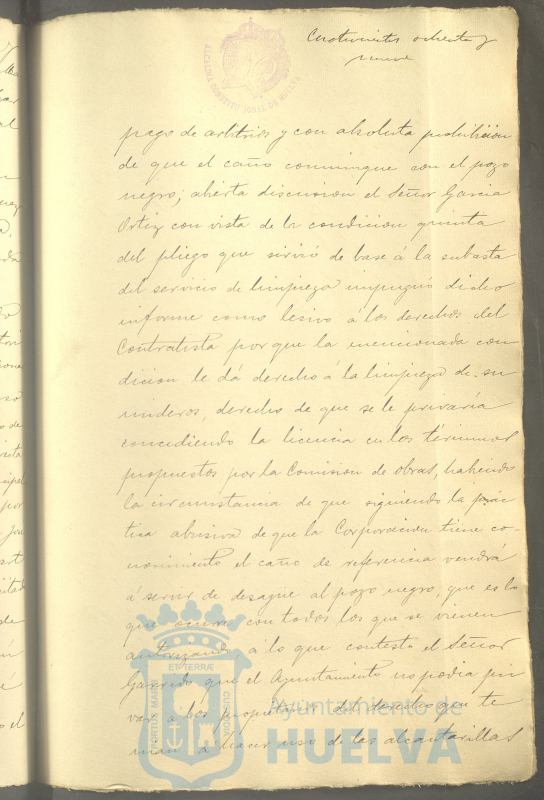 Cuatrocientos ochenta y
nueve
ALCALDIA CONSTITUCIONAL DE HUELVA
pago de arbitrios y con absoluta prohibicion
de que el caño comunique con el pozo
negro; abierta discusion el Señor Garcia
Ortiz con vista de la condicion quinta
del pliego que sirvió de base á la subasta
del servicio de limpieza impugnó dicho
informe como lesivo á los derechos del
Contratista por que la mencionada con
dicion le dá derecho á la limpieza de su
mideros, derecho de que se le privaría
concediendo la licencia en los términos
propuestos por la Comision de obras, habiendo
la circunstancia de que siguiendo la prác
tica abusiva de que la Corporacion tiene co-
nocimiento el caño de referencia vendrá
á servir de desagüe al pozo negro, que es lo
que ocurre con todos los que se vienen
autorizando á lo que contestó el Señor
Garrido que el Ayuntamiento no podia pri
var á los propietarios del derecho que te
nian á hacer uso de las alcantarillas
PORTUS MARIS ET TERRÆ CUSTODIA
Ayuntamiento de
HUELVA